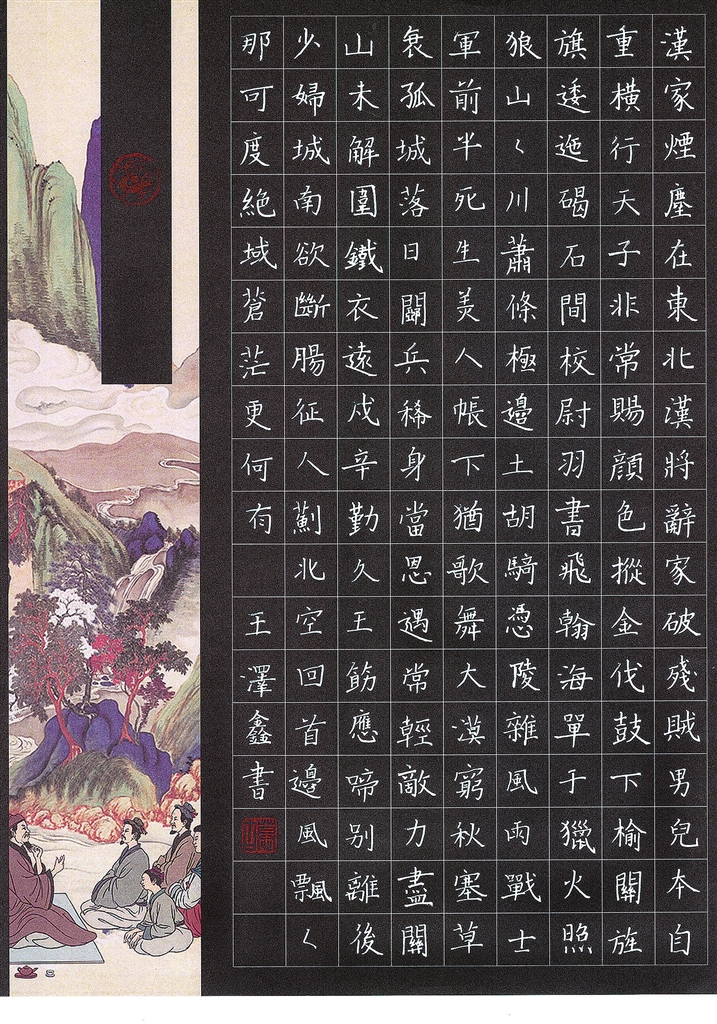 漢家煙塵在東北漢將辭家破殘賊男兒本自
重橫行天子非常賜顏色摐金伐鼓下榆關旌
旗逶迤碣石間校尉羽書飛翰海單于獵火照
狼山〱川蕭條極邊土胡騎憑陵雜風雨戰士
軍前半死生美人帳下猶歌舞大漠窮秋塞草
衰孤城落日鬭兵稀身當恩遇常輕敵力盡關
山未解圍鐵衣遠戍辛勤久玉筯應啼別離後
少婦城南欲斷腸征人薊北空回首邊風飄〱
那可度絕域蒼茫更何有
王澤鑫書